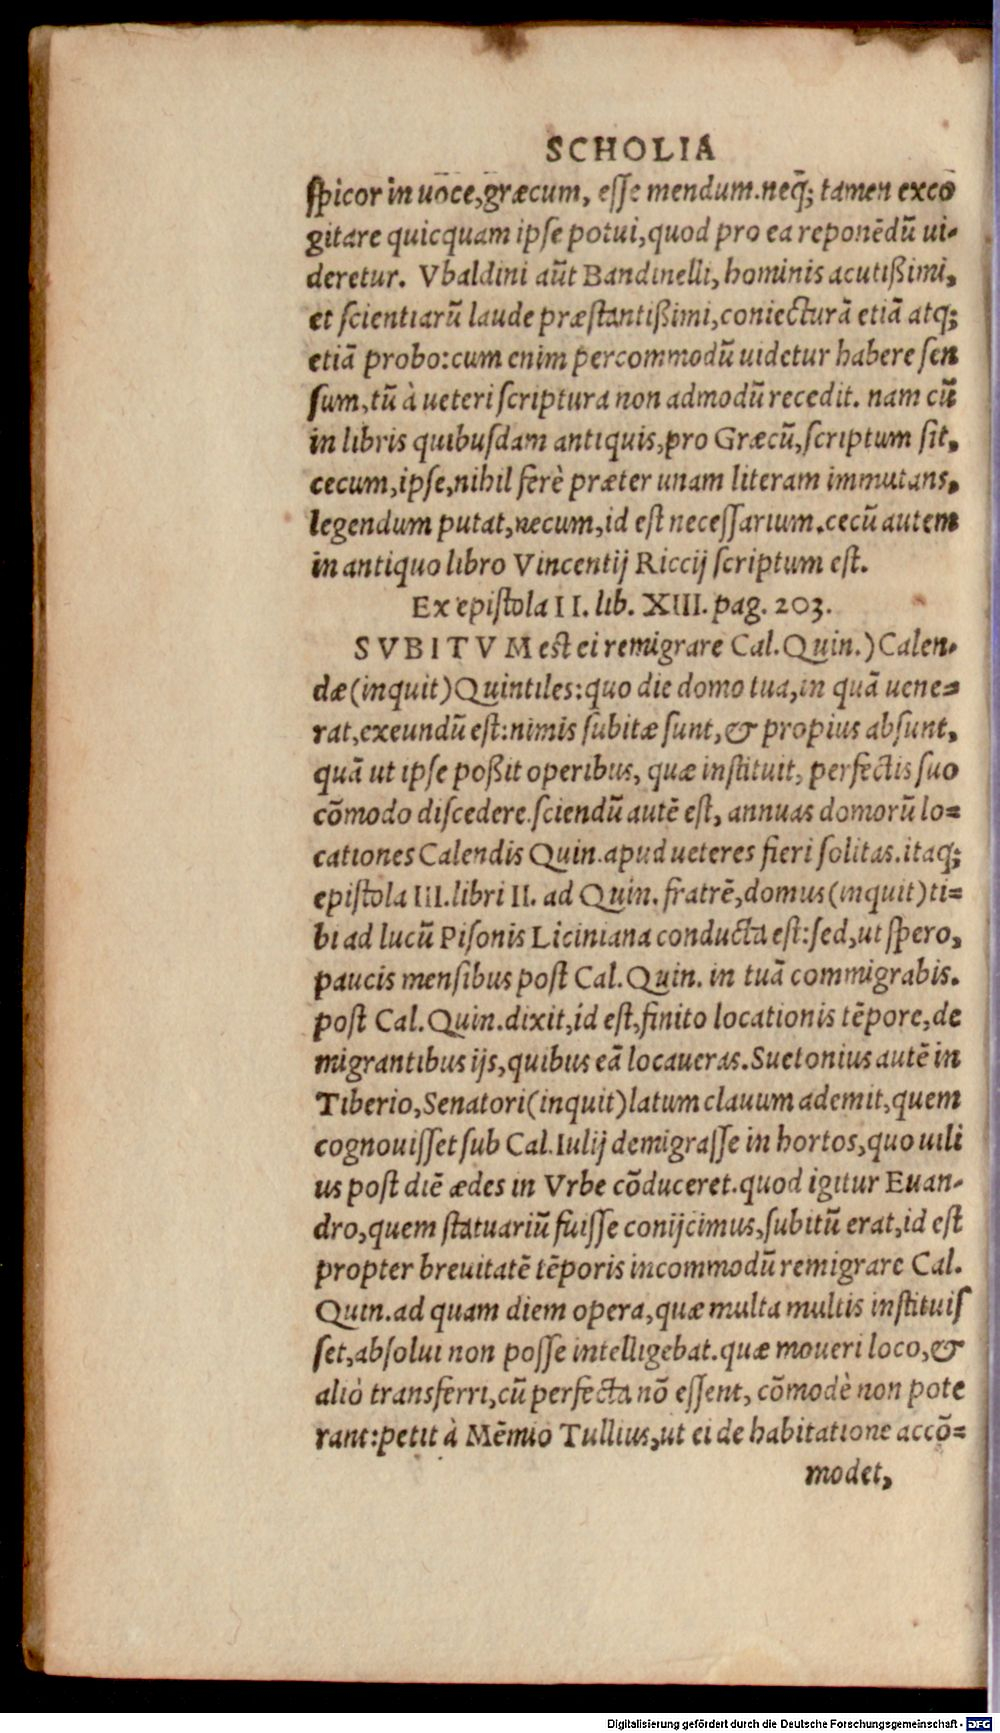 SCHOLIA
ſpicor in uōce, græcum, eſſe mendum. neq; tamen excō
gitare quicquam ipſe potui, quod pro ea reponēdū ui-
deretur. Vbaldini aūt Bandinelli, hominis acutißimi,
et ſcientiarū laude præſtantißimi, coniecturā etiā atq;
etiā probo: cum enim percommodū uidetur habere ſen
ſum, tū à ueteri ſcriptura non admodū recedit. nam cū
in libris quibuſdam antiquis, pro Græcū, ſcriptum ſit,
cecum, ipſe, nihil ferè præter unam literam immutans,
legendum putat, necum, id est neceſſarium. cecū autem
in antiquo libro Vincentij Riccij ſcriptum eſt.
Ex epiſtola II. lib. XIII. pag. 203.
SVBITVM est ei remigrare Cal. Quin.) Calen-
dæ (inquit) Quintiles: quo die domo tua, in quā uene=
rat, exeundū eſt: nimis ſubitæ ſunt, & propius abſunt,
quā ut ipſe poßit operibus, quæ inſtituit, perfectis ſuo
cōmodo diſcedere. ſciendū autē eſt, annuas domorū lo=
cationes Calendis Quin. apud ueteres fieri ſolitas. itaq;
epiſtola III. libri II. ad Quin. fratrē, domus (inquit) ti=
bi ad lucū Piſonis Liciniana conducta eſt: ſed, ut ſpero,
paucis menſibus poſt Cal. Quin. in tuā commigrabis.
poſt Cal. Quin. dixit, id eſt, finito locationis tēpore, de
migrantibus ijs, quibus eā locaueras. Suetonius autē in
Tiberio, Senatori (inquit) latum clauum ademit, quem
cognouiſſet ſub Cal. Iulij demigraſſe in hortos, quo uili
us poſt diē ædes in Vrbe cōduceret. quod igitur Euan-
dro, quem ſtatuariū fuiſſe conijcimus, ſubitū erat, id eſt
propter breuitatē tēporis incommodū remigrare Cal.
Quin. ad quam diem opera, quæ multa multis inſtituiſ
ſet, abſolui non poſſe intelligebat. quæ moueri loco, &
aliò transferri, cū perfecta nō eſſent, cōmodè non pote
rant: petit à Mēmio Tullius, ut ei de habitatione accō=
modet,
Digitalisierung gefördert durch die Deutsche Forschungsgemeinschaft - DFG